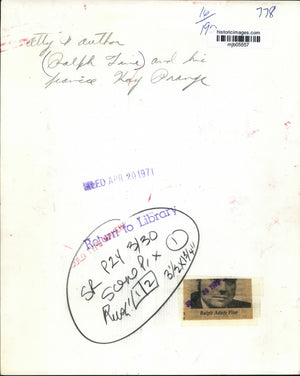 16/
778
historicimages.com
mjb05557
atty & author
(Ralph Fine) and his
fiancee Kay Prange
APR 20 1971
Return to Library
P24 3/30
1
3½ x 1¼"
Rush 1 2
Ralph Adam Fine